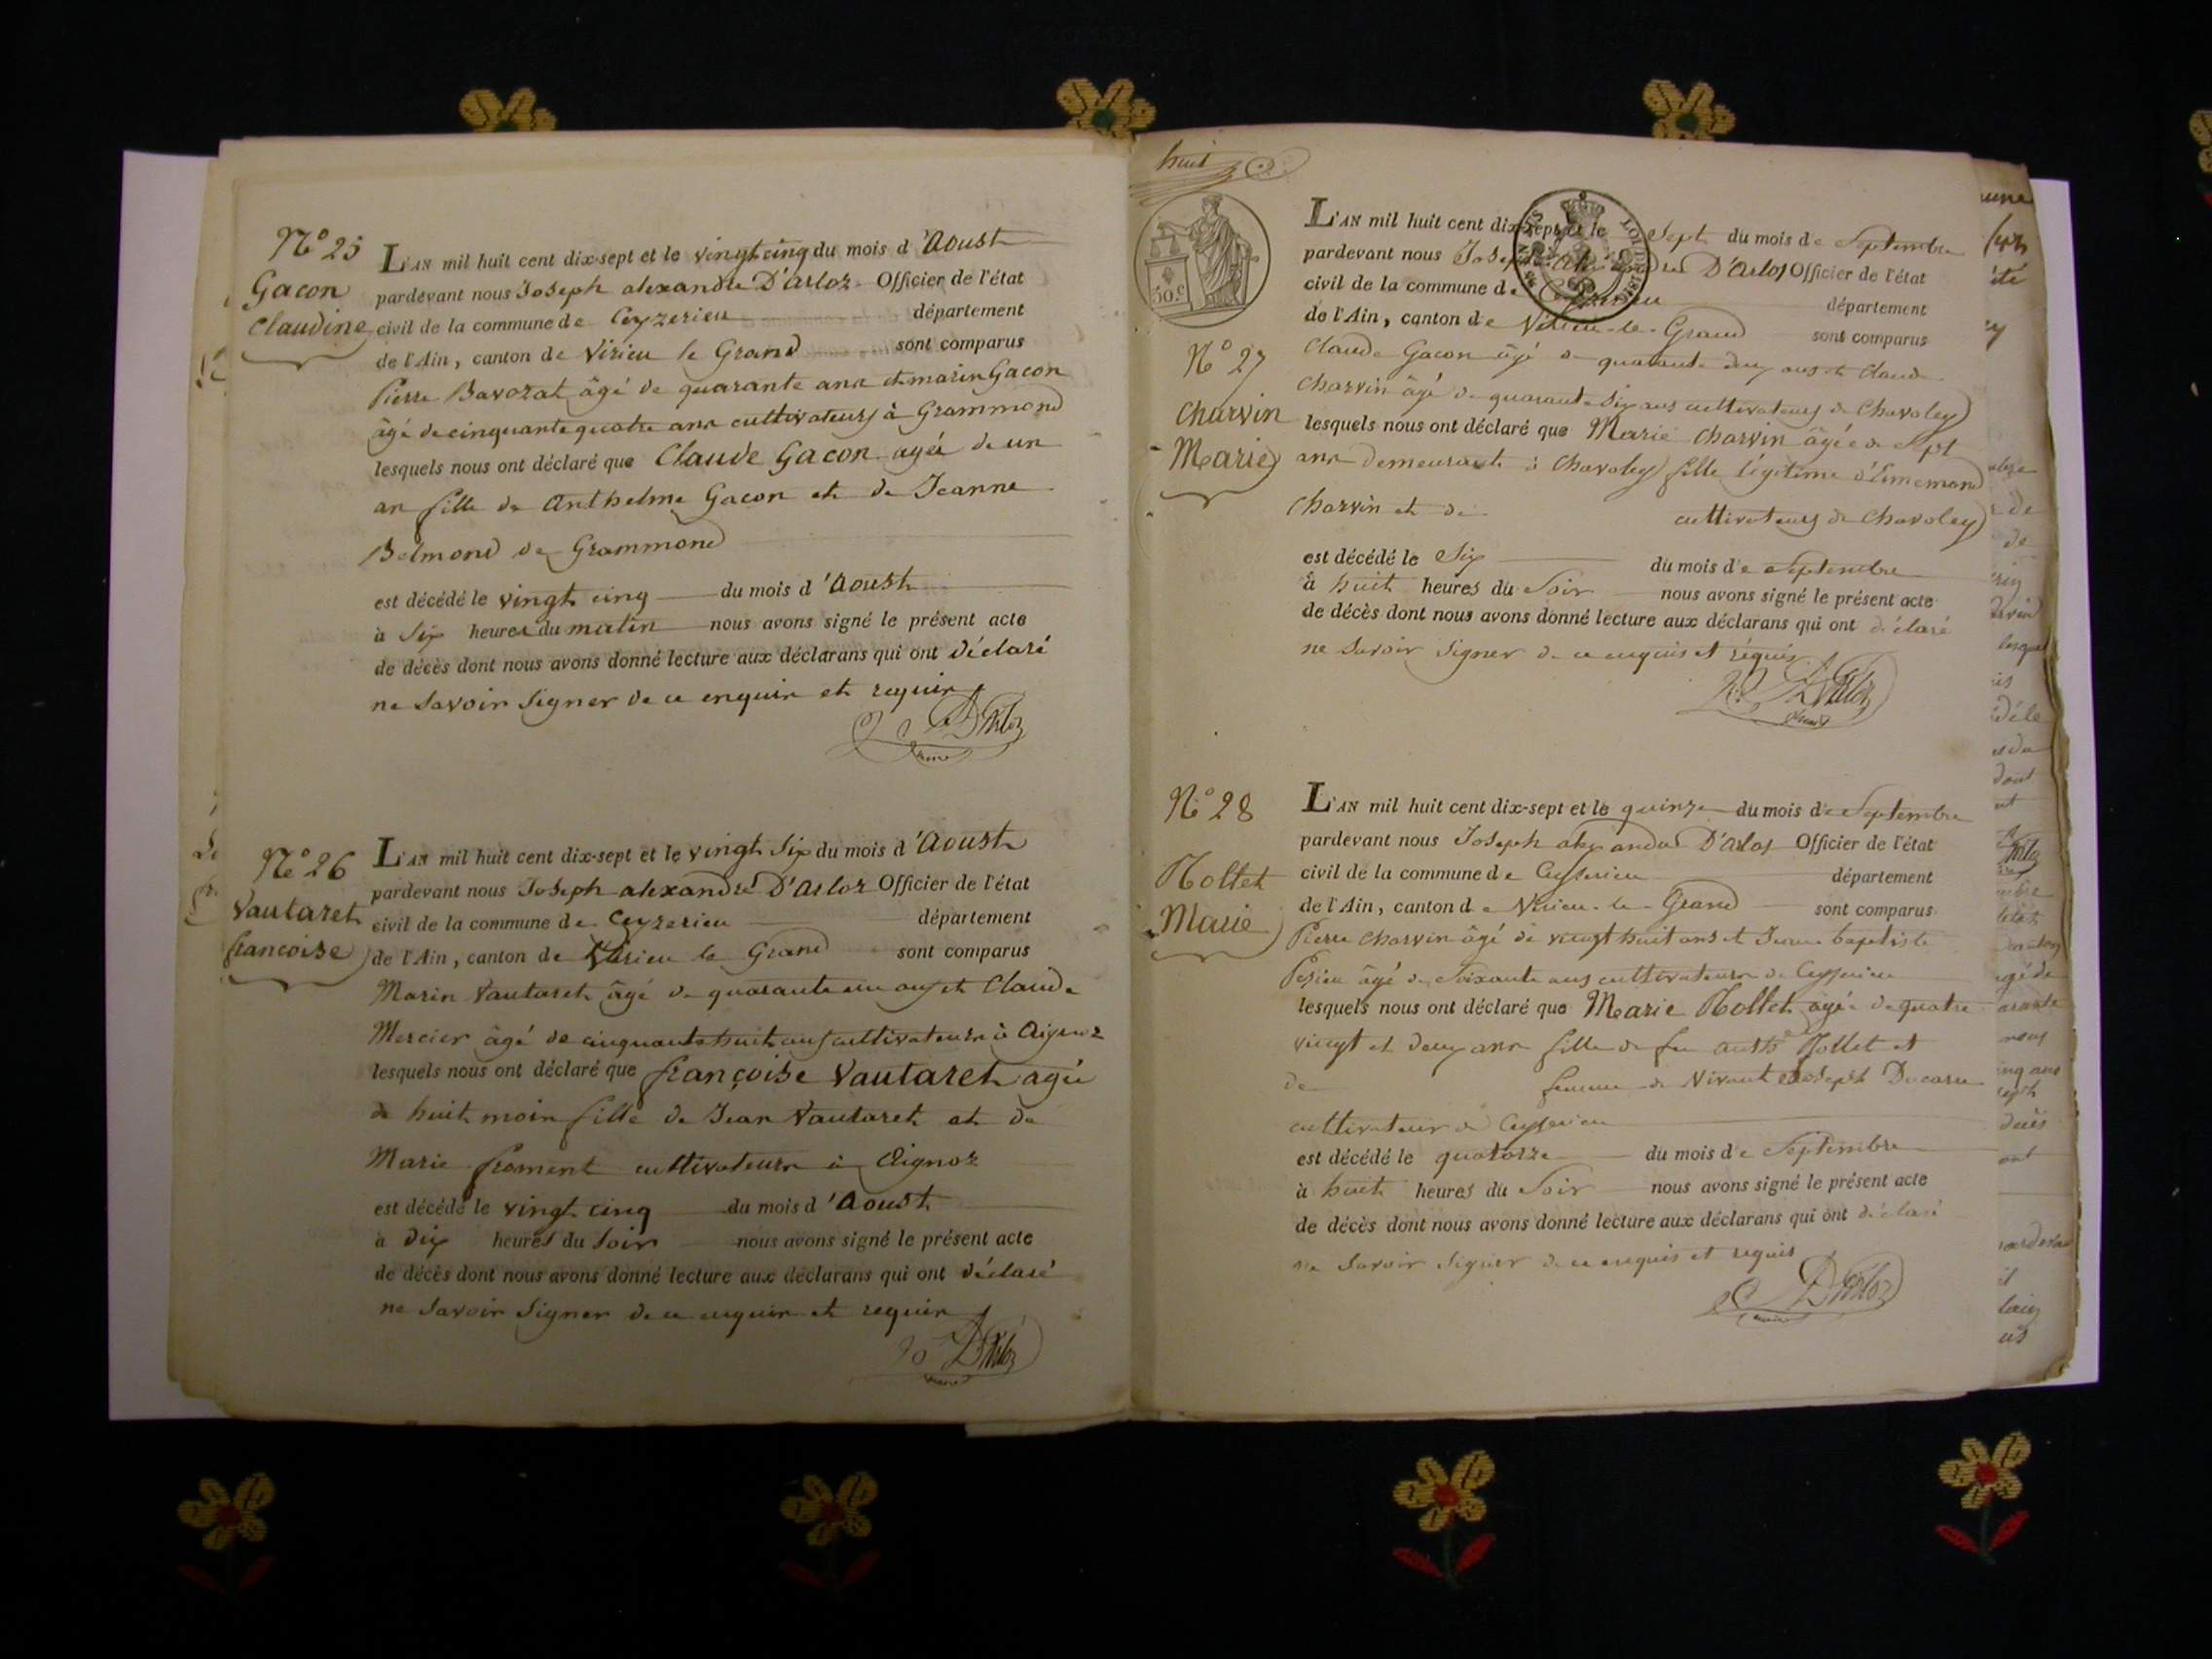 N.º 25
Gacon
Claudine
L'AN mil huit cent dix-sept et le vingt cinq du mois d'Aoust
pardevant nous Joseph alexandre D'arloz Officier de l'état
civil de la commune de Ceyzerieu département
de l'Ain, canton de Virieu le Grand sont comparus
Pierre Bavozat âgé de quarante ans et marin Gacon
âgé de cinquante quatre ans cultivateurs à Grammond
lesquels nous ont déclaré que Claude Gacon agée de un
an fille de Anthelme Gacon et de Jeanne
Belmond de Grammond
est décédé le vingt cinq du mois d'Aoust
à Six heures du matin nous avons signé le présent acte
de décès dont nous avons donné lecture aux déclarans qui ont déclaré
ne Savoir Signer de ce enquir et requir
D'Arloz
N.º 26
Vautaret
francoise
L'AN mil huit cent dix-sept et le vingt Six du mois d'Aoust
pardevant nous Joseph alexandre D'arloz Officier de l'état
civil de la commune de Ceyzerieu département
de l'Ain, canton de Virieu le Grand sont comparus
Marin Vautaret âgé de quarante un ans et Claude
Mercier âgé de cinquante huit ans cultivateurs à Aignoz
lesquels nous ont déclaré que françoise Vautaret agée
de huit moir fille de Jean Vautaret et de
Marie froment cultivateurs à Aignoz
est décédé le vingt cinq du mois d'Aoust
à dix heures du Soir nous avons signé le présent acte
de décès dont nous avons donné lecture aux déclarans qui ont déclaré
ne Savoir Signer de ce enquir et requir
D'Arloz
huit
50 c.
N.º 27
Charvin
Marie
L'AN mil huit cent dix-sept et le Sept du mois de Septembre
pardevant nous Joseph alexandre D'Arloz Officier de l'état
civil de la commune de Ceyzerieu département
de l'Ain, canton de Virieu-le-Grand sont comparus
Claude Gacon âgé de quarante deux ans et Claude
Charvin âgé de quarante Six ans cultivateurs de Chavoley
lesquels nous ont déclaré que Marie Charvin âgée de Sept
ans demeurante à Chavoley fille légitime d'Ennemond
Charvin et de cultivateurs de Chavoley
est décédé le Six du mois de Septembre
à huit heures du Soir nous avons signé le présent acte
de décès dont nous avons donné lecture aux déclarans qui ont déclaré
ne Savoir Signer de ce enquis et requis
D'Arloz
N.º 28
Mollet
Marie
L'AN mil huit cent dix-sept et le quinze du mois de Septembre
pardevant nous Joseph alexandre D'Arloz Officier de l'état
civil de la commune de Ceyzerieu département
de l'Ain, canton de Virieu-le-Grand sont comparus
Pierre Charvin âgé de vingt huit ans et Jean baptiste
âgé de Soixante ans cultivateurs de Ceyzerieu
lesquels nous ont déclaré que Marie Mollet âgée de quatre
vingt et deux ans fille de feu Mollet et
de femme de Vivant Joseph Ducarre
cultivateur de Ceyzerieu
est décédé le quatorze du mois de Septembre
à huit heures du Soir nous avons signé le présent acte
de décès dont nous avons donné lecture aux déclarans qui ont déclaré
ne Savoir Signer de ce enquis et requis
D'Arloz